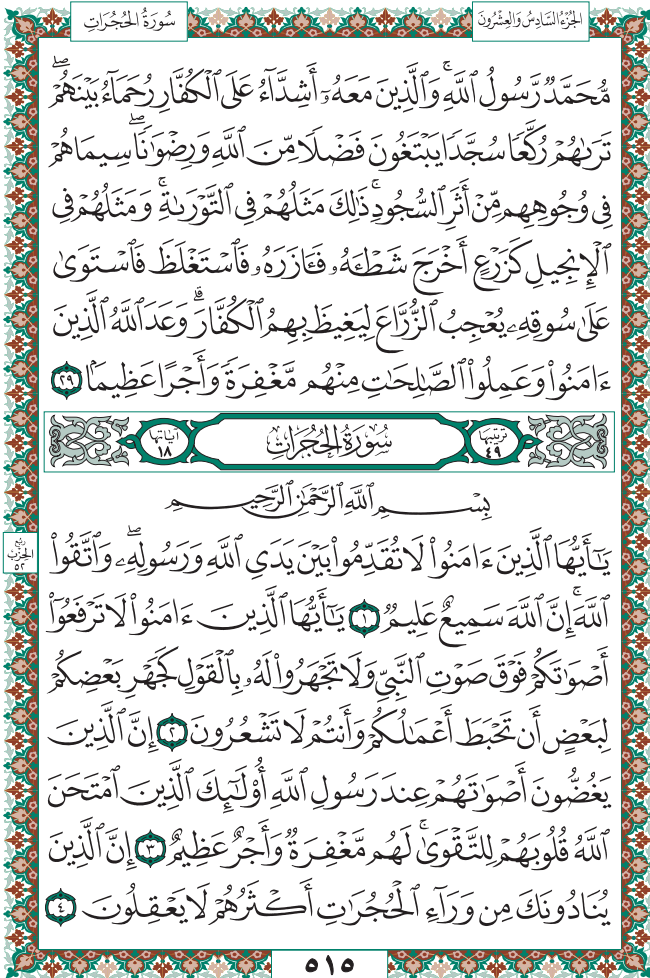 سُورَةُ الحُجُرَاتِ
الجُزْءُ السَّادِسُ وَالعِشْرُونَ
مُّحَمَّدٌ رَّسُولُ ٱللَّهِۚ وَٱلَّذِينَ مَعَهُۥٓ أَشِدَّآءُ عَلَى ٱلۡكُفَّارِ رُحَمَآءُ بَيۡنَهُمۡۖ
تَرَىٰهُمۡ رُكَّعٗا سُجَّدٗا يَبۡتَغُونَ فَضۡلٗا مِّنَ ٱللَّهِ وَرِضۡوَٰنٗاۖ سِيمَاهُمۡ
فِي وُجُوهِهِم مِّنۡ أَثَرِ ٱلسُّجُودِۚ ذَٰلِكَ مَثَلُهُمۡ فِي ٱلتَّوۡرَىٰةِۚ وَمَثَلُهُمۡ فِي
ٱلۡإِنجِيلِ كَزَرۡعٍ أَخۡرَجَ شَطۡـَٔهُۥ فَـَٔازَرَهُۥ فَٱسۡتَغۡلَظَ فَٱسۡتَوَىٰ
عَلَىٰ سُوقِهِۦ يُعۡجِبُ ٱلزُّرَّاعَ لِيَغِيظَ بِهِمُ ٱلۡكُفَّارَۗ وَعَدَ ٱللَّهُ ٱلَّذِينَ
ءَامَنُواْ وَعَمِلُواْ ٱلصَّٰلِحَٰتِ مِنۡهُم مَّغۡفِرَةٗ وَأَجۡرًا عَظِيمَۢا ٢٩
تَرتِيبُهَا ٤٩ سُورَةُ الحُجُرَاتِ آيَاتُهَا ١٨
بِسۡمِ ٱللَّهِ ٱلرَّحۡمَٰنِ ٱلرَّحِيمِ
يَٰٓأَيُّهَا ٱلَّذِينَ ءَامَنُواْ لَا تُقَدِّمُواْ بَيۡنَ يَدَيِ ٱللَّهِ وَرَسُولِهِۦۖ وَٱتَّقُواْ
ٱللَّهَۚ إِنَّ ٱللَّهَ سَمِيعٌ عَلِيمٞ ١ يَٰٓأَيُّهَا ٱلَّذِينَ ءَامَنُواْ لَا تَرۡفَعُوٓاْ
أَصۡوَٰتَكُمۡ فَوۡقَ صَوۡتِ ٱلنَّبِيِّ وَلَا تَجۡهَرُواْ لَهُۥ بِٱلۡقَوۡلِ كَجَهۡرِ بَعۡضِكُمۡ
لِبَعۡضٍ أَن تَحۡبَطَ أَعۡمَٰلُكُمۡ وَأَنتُمۡ لَا تَشۡعُرُونَ ٢ إِنَّ ٱلَّذِينَ
يَغُضُّونَ أَصۡوَٰتَهُمۡ عِندَ رَسُولِ ٱللَّهِ أُوْلَٰٓئِكَ ٱلَّذِينَ ٱمۡتَحَنَ
ٱللَّهُ قُلُوبَهُمۡ لِلتَّقۡوَىٰۚ لَهُم مَّغۡفِرَةٞ وَأَجۡرٌ عَظِيمٌ ٣ إِنَّ ٱلَّذِينَ
يُنَادُونَكَ مِن وَرَآءِ ٱلۡحُجُرَٰتِ أَكۡثَرُهُمۡ لَا يَعۡقِلُونَ ٤
رُبْع
الحِزْب
٥٢
٥١٥